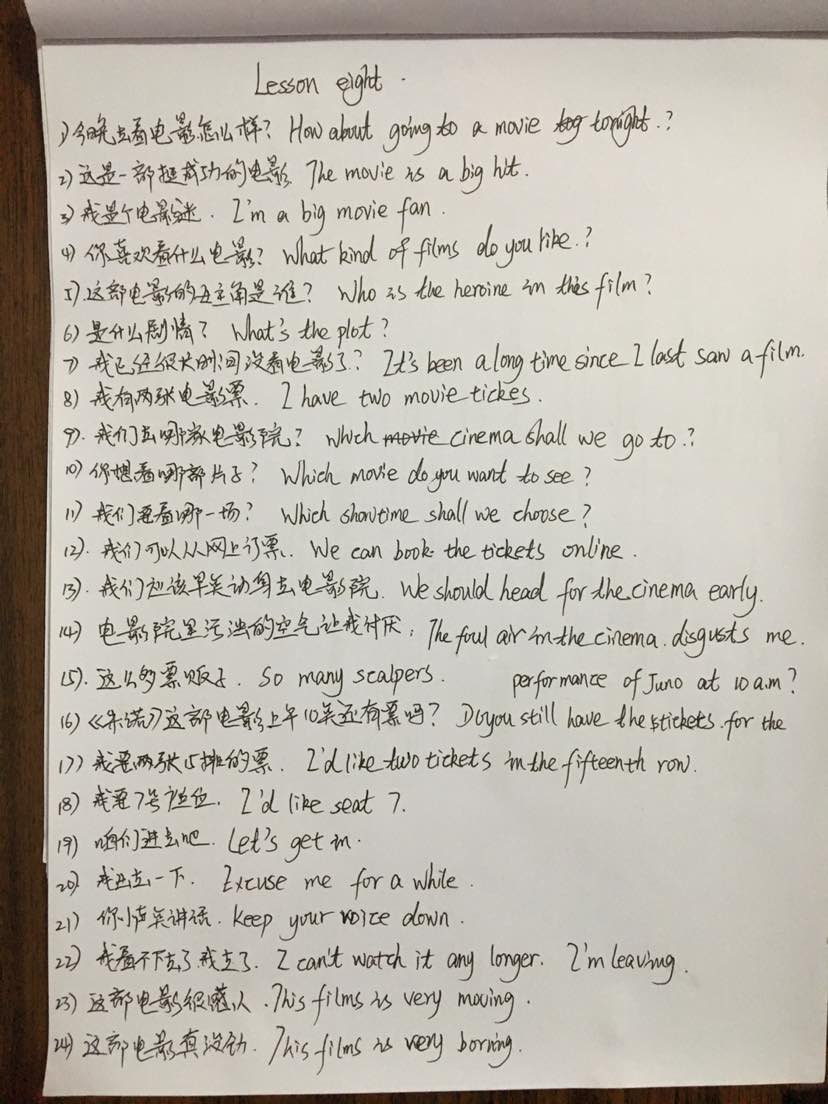 Lesson eight.
1) 今晚去看电影怎么样? How about going to a movie tog tonight.?
2) 这是一部挺成功的电影. The movie is a big hit.
3) 我是个电影迷. I'm a big movie fan.
4) 你喜欢看什么电影? What kind of films do you like.?
5) 这部电影的女主角是谁? Who is the heroine in this film?
6) 是什么剧情? What's the plot?
7) 我已经很长时间没看电影了? It's been a long time since I last saw a film.
8) 我有两张电影票. I have two movie tickes.
9) 我们去哪家电影院? which movie cinema shall we go to.?
10) 你想看哪部片子? Which movie do you want to see?
11) 我们要看哪一场? Which showtime shall we choose?
12). 我们可以从网上订票. We can book the tickets online.
13). 我们应该早点动身去电影院. We should head for the cinema early.
14) 电影院里污浊的空气让我讨厌. The foul air in the cinema. disgusts me.
15). 这么多票贩子. So many scalpers. performance of Juno at 10 a.m?
16) 《朱诺》这部电影上午10点还有票吗? Do you still have the tickets for the
17) 我要两张15排的票. I'd like two tickets in the fifteenth row.
18) 我要7号座位. I'd like seat 7.
19) 咱们进去吧. Let's get in.
20) 我出去一下. Excuse me for a while.
21) 你小声点讲话. Keep your voice down.
22) 我看不下去了我走了. I can't watch it any longer. I'm leaving.
23) 这部电影很感人. This films is very moving.
24) 这部电影真没劲. This films is very borning.